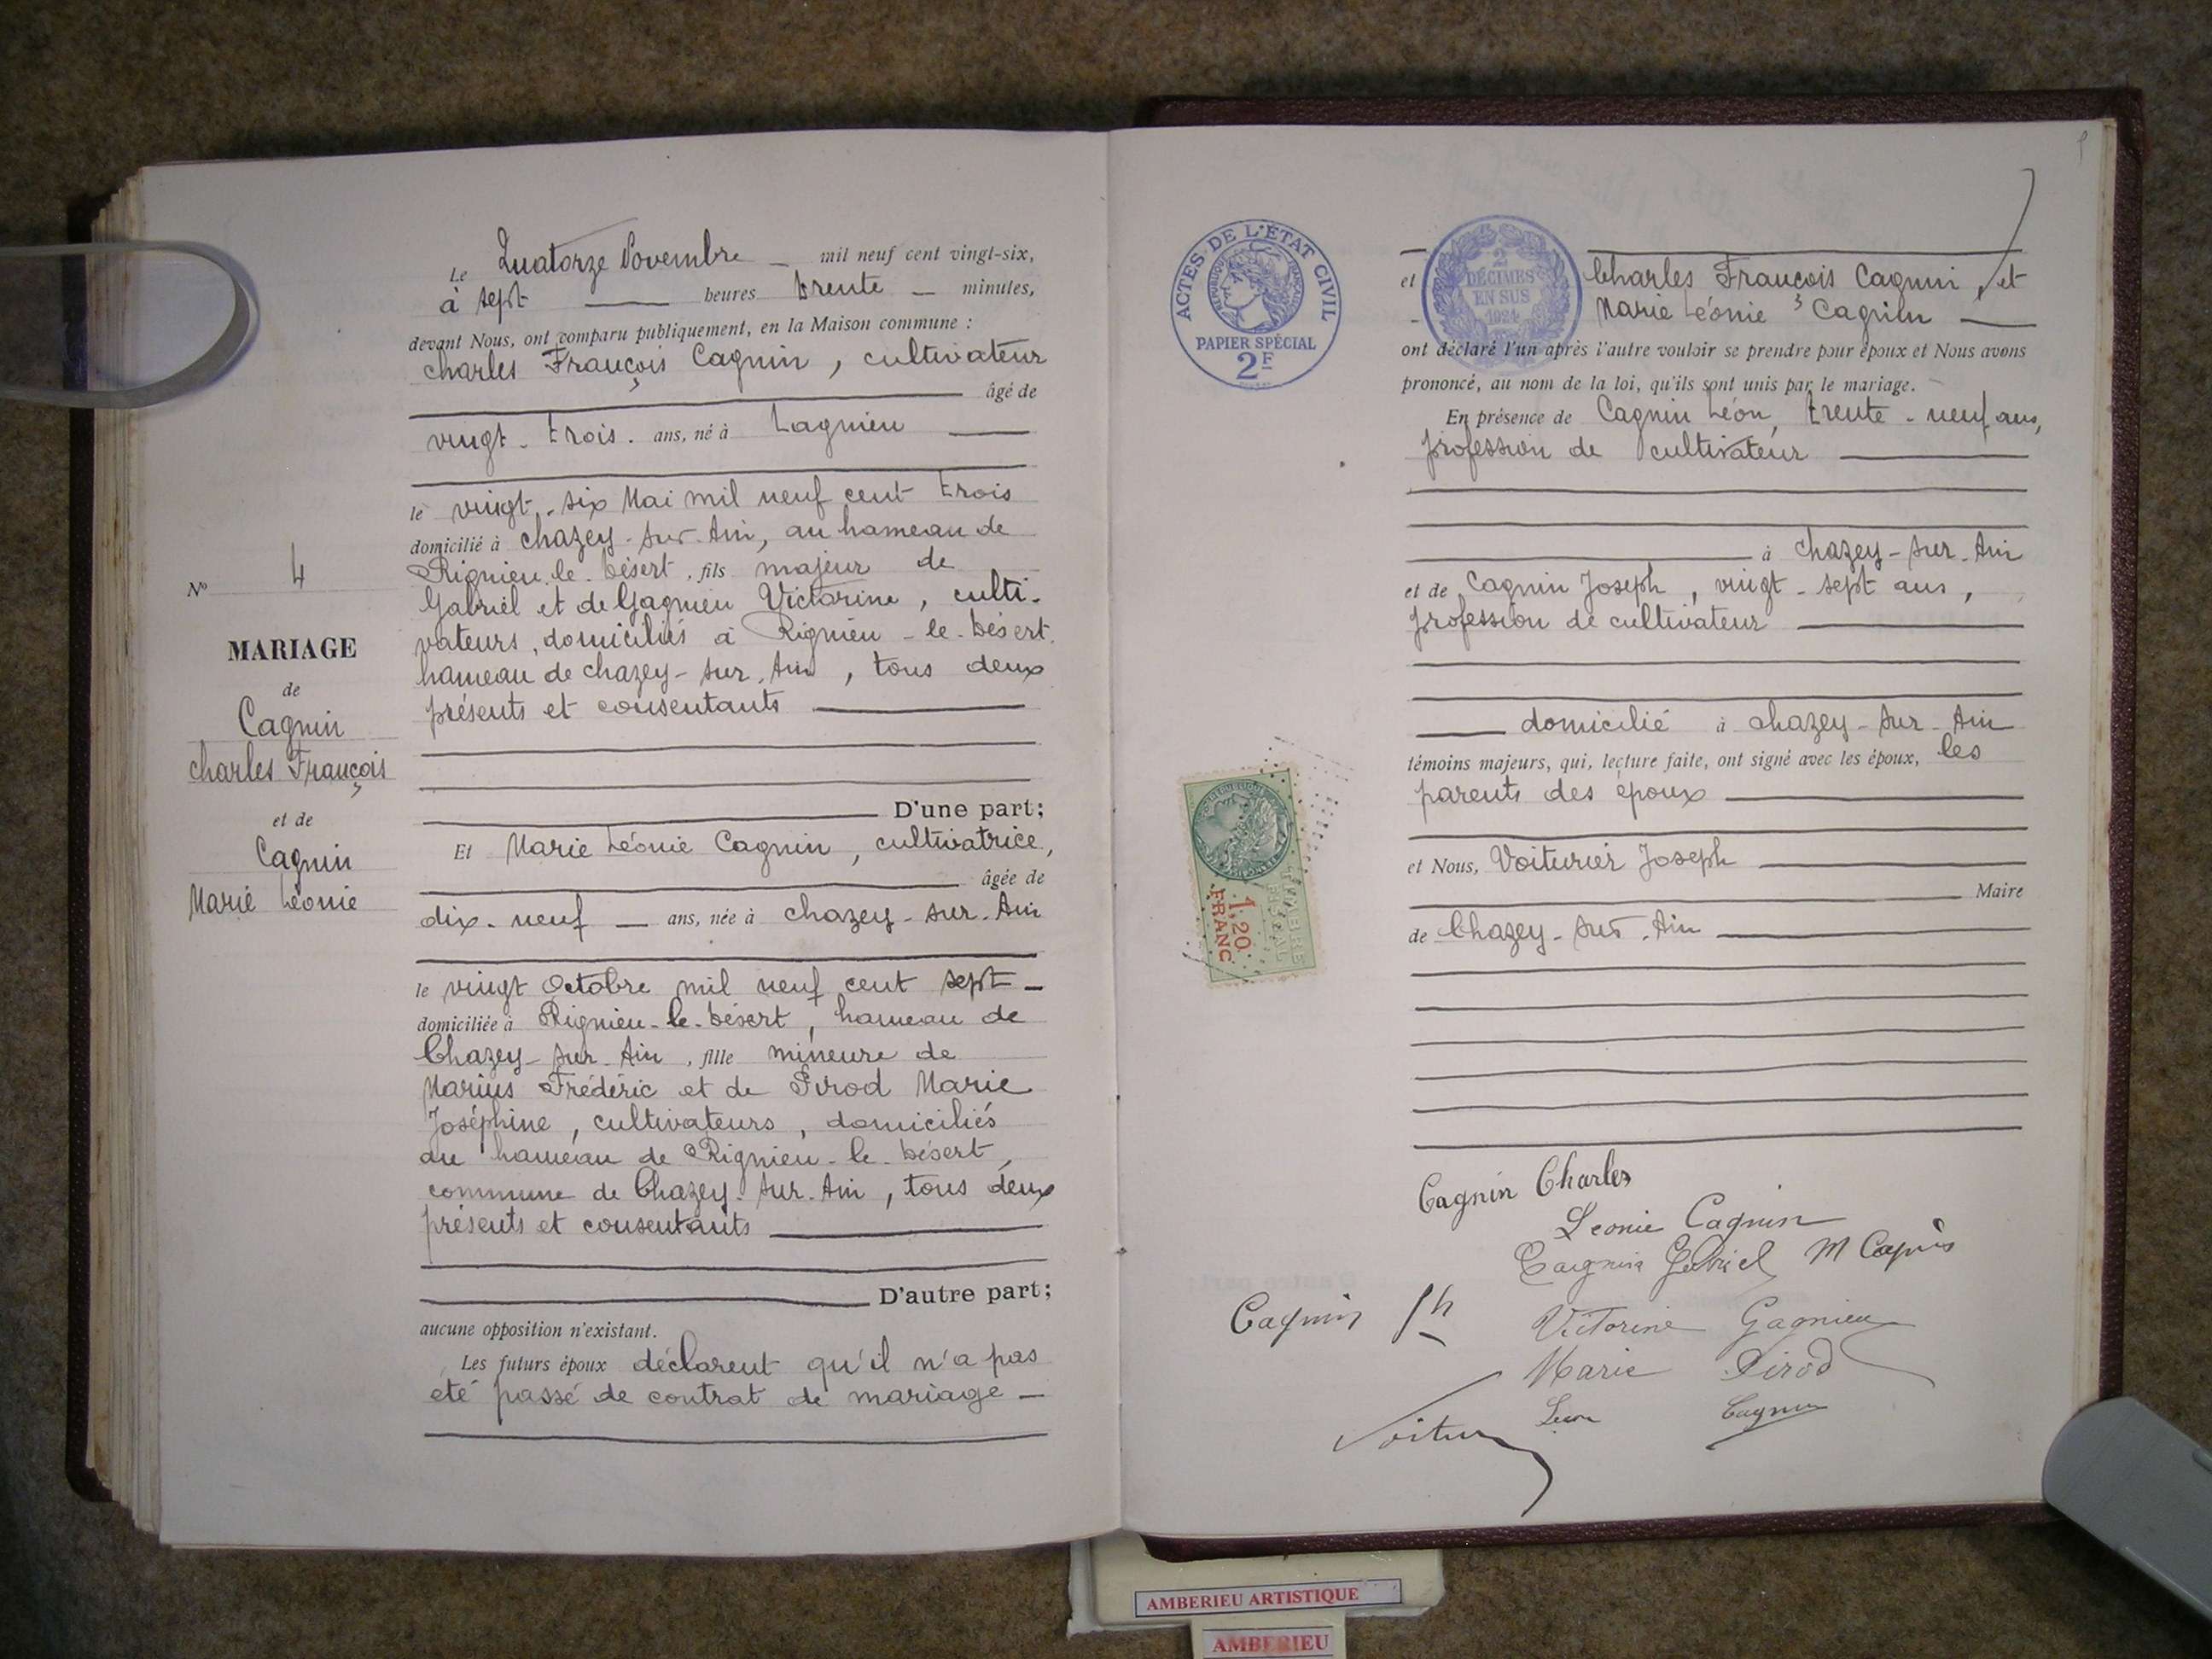 Le Quatorze Novembre _ mil neuf cent vingt-six,
à sept ___ heures trente _ minutes,
devant Nous, ont comparu publiquement, en la Maison commune :
charles François Cagnin, cultivateur
âgé de
vingt-trois. ans, né à Lagnieu
le vingt-six Mai mil neuf cent trois
domicilié à chazey-sur-Ain, au hameau de
Rignieu-le-Désert, fils majeur de
Gabriel et de Gagnieu Victorine, culti-
vateurs, domiciliés à Rignieu-le-Désert
hameau de chazey-sur-Ain, tous deux
présents et consentants
D'une part;
Nº 4
MARIAGE
de
Cagnin
charles François
et de
Cagnin
Marie Léonie
Et Marie Léonie Cagnin, cultivatrice,
âgée de
dix-neuf _ ans, née à chazey-sur-Ain
le vingt Octobre mil neuf cent sept _
domiciliée à Rignieu-le-Désert, hameau de
Chazey-sur-Ain, fille mineure de
Marius Frédéric et de Pirod Marie
Joséphine, cultivateurs, domiciliés
au hameau de Rignieu-le-Désert,
commune de Chazey-sur-Ain, tous deux
présents et consentants
D'autre part;
aucune opposition n'existant.
Les futurs époux déclarent qu'il n'a pas
été passé de contrat de mariage _
ACTES DE L'ÉTAT CIVIL
RÉPUBLIQUE FRANÇAISE
PAPIER SPÉCIAL
2F
2
DÉCIMES
EN SUS
1924
et Charles François Cagnin, et
Marie Léonie Cagnin
ont déclaré l'un après l'autre vouloir se prendre pour époux et Nous avons
prononcé, au nom de la loi, qu'ils sont unis par le mariage.
En présence de Cagnin Léon, trente-neuf ans,
profession de cultivateur
à chazey-sur-Ain
et de Cagnin Joseph, vingt-sept ans,
profession de cultivateur
domicilié à chazey-sur-Ain
témoins majeurs, qui, lecture faite, ont signé avec les époux, les
parents des époux
et Nous, Voiturier Joseph
Maire
de Chazey-sur-Ain
TIMBRE
FISCAL
1,20
FRANC
Cagnin Charles
Leonie Cagnin
Cagnin Gabriel M
Cagnin Jh
Victorine Gagnieu
Marie Pirod
Leon Cagnin
AMBERIEU ARTISTIQUE
AMBERIEU